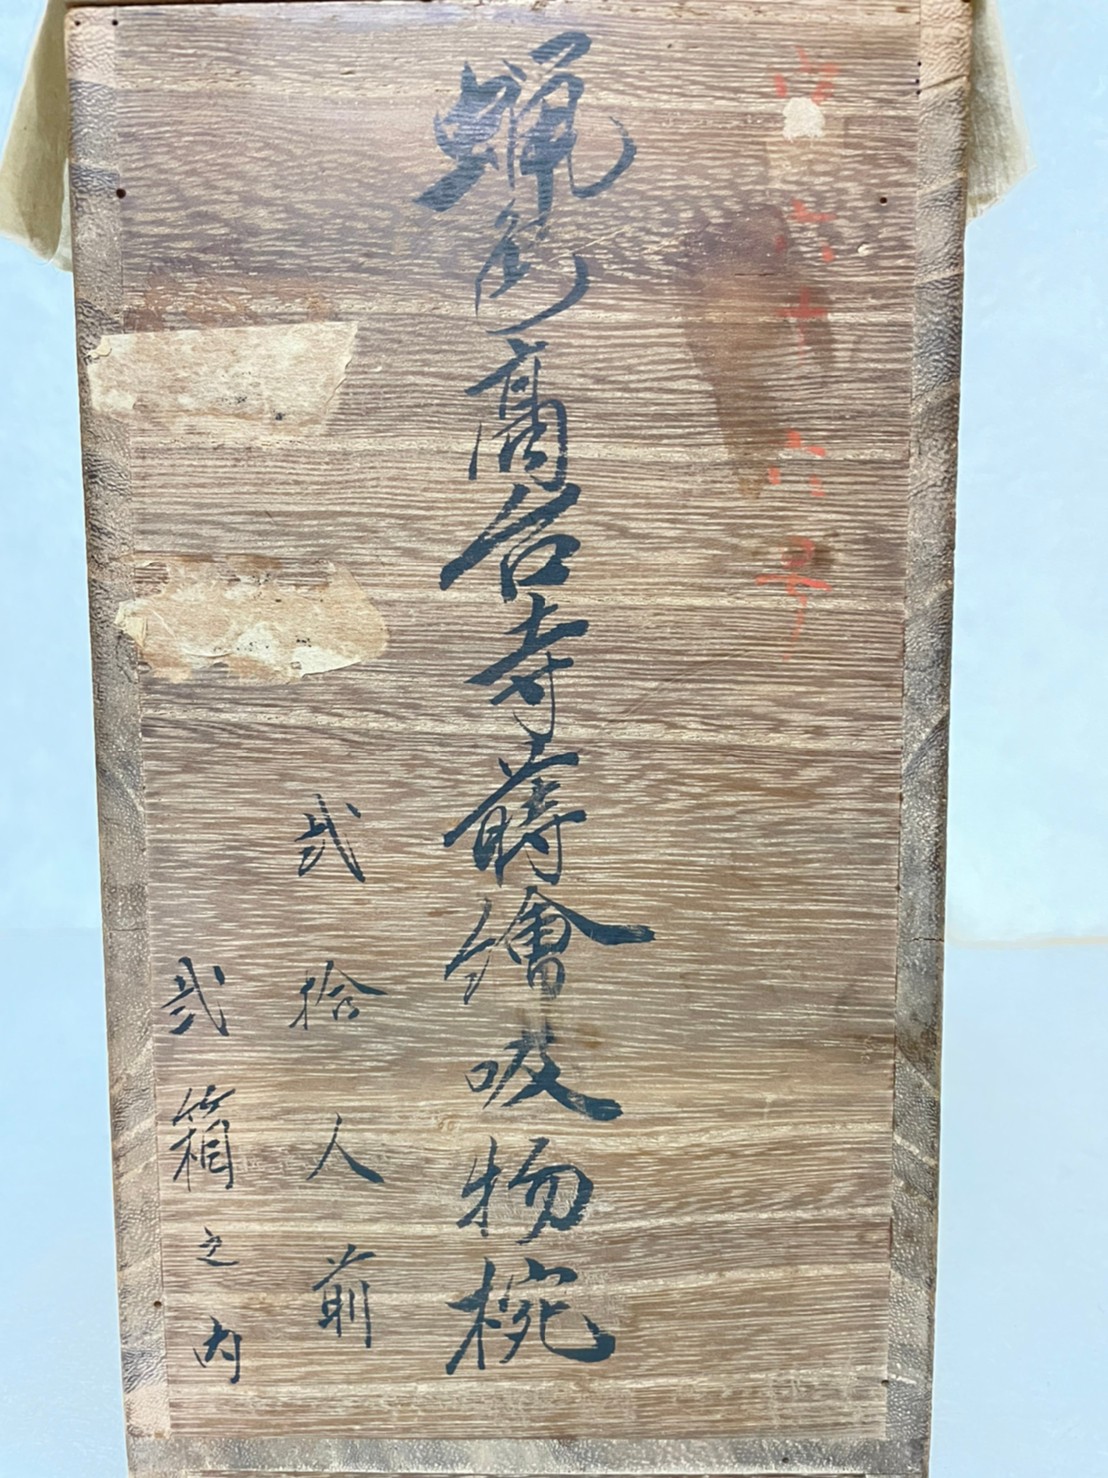 六十六号
蝋色高台寺蒔繪吸物椀
弐拾人前
弐箱之内